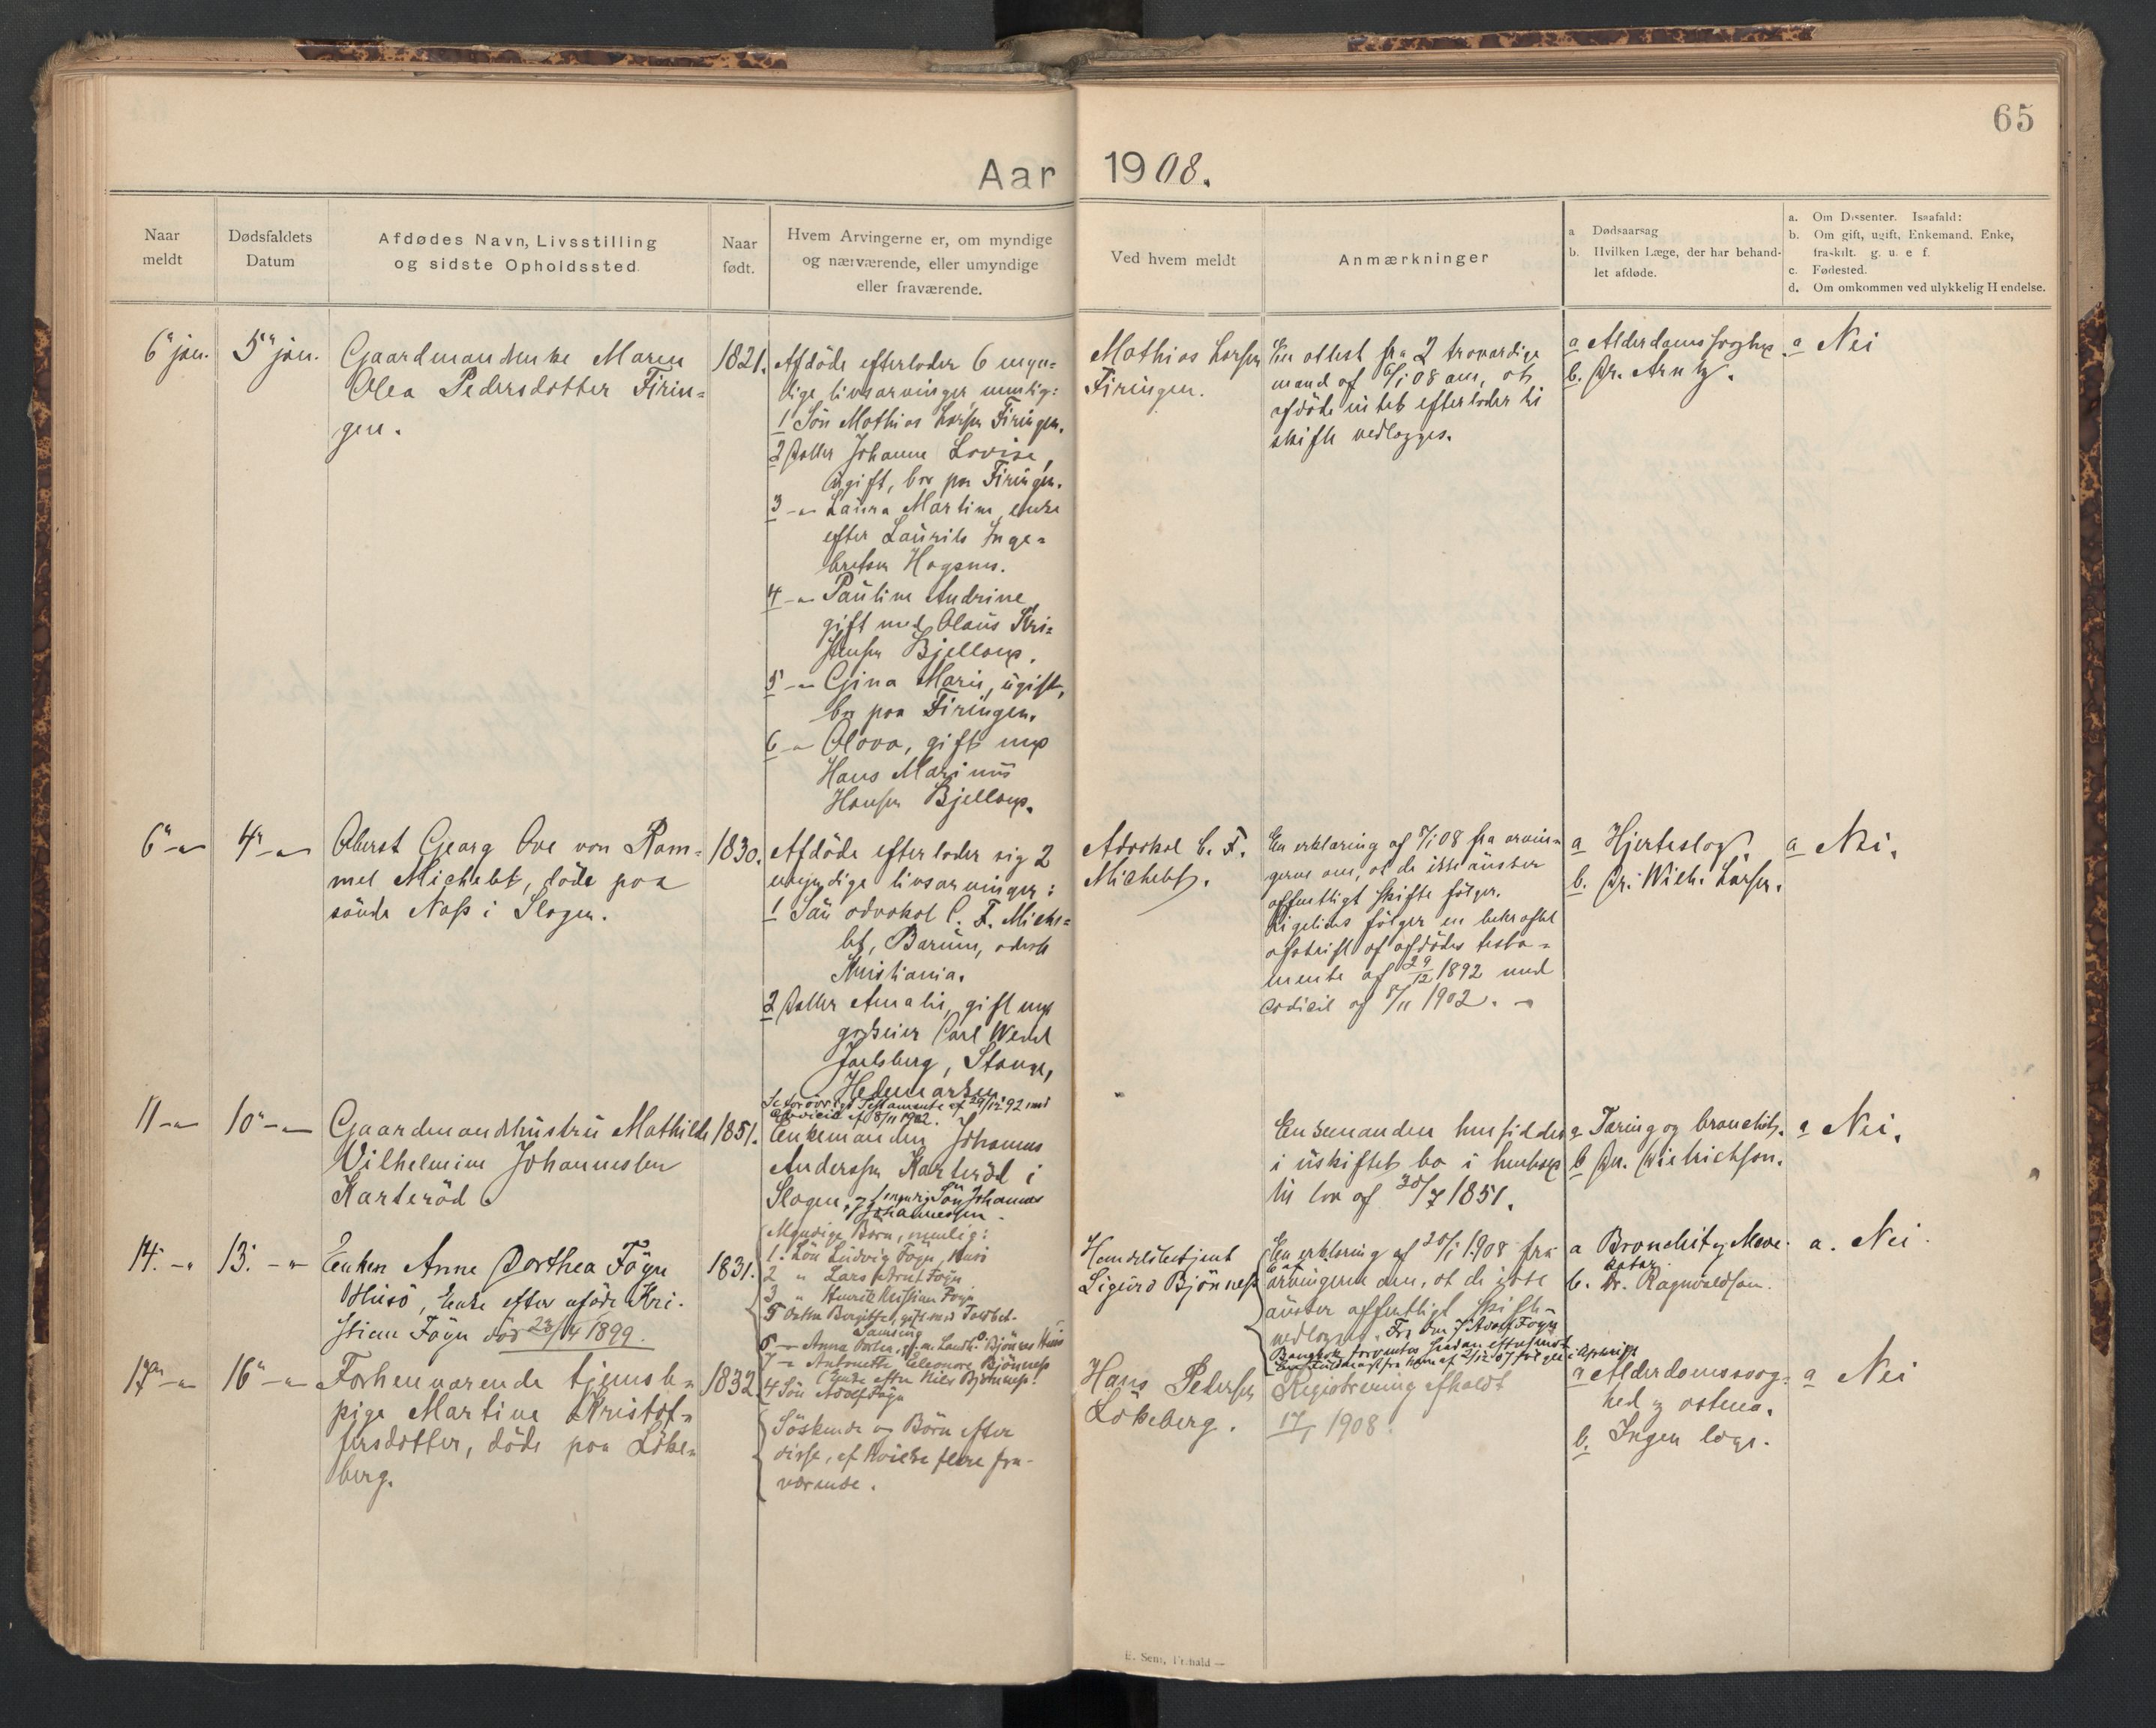 65
Aar 1908.
Naar meldt
Dødsfaldets Datum
Afdødes Navn, Livsstilling og sidste Opholdssted.
Naar født.
Hvem Arvingerne er, om myndige og nærværende, eller umyndige eller fraværende.
Ved hvem meldt
Anmærkninger
a Dødsaarsag
b. Hvilken Læge, der har behandlet afdøde.
a. Om Dissenter. Isaafald:
b. Om gift, ugift, Enkemand, Enke, fraskilt. g. u. e f.
c. Fødested.
d. Om omkommen ved ulykkelig Hendelse.
6" jan.
5" jan.
Gaardmandsenke Maren
Olea Pedersdotter Firin-
gen.
1821.
Afdöde efterlader 6 myn-
dige livsarvinger, nemlig:
1 Sön Mathias Larsen Firingen.
2 Datter Johanne Lovise,
ugift, bor paa Firingen.
3 -"- Laura Martine, enke
efter Laurits Inge-
bretsen Hogsnes.
4 -"- Pauline Andrine
gift med Olaus Kri-
stensen Bjelland.
5 -"- Gina Marie, ugift,
bor paa Firingen.
6 -"- Olava, gift med
Hans Marinus
Hansen
Mathias Larsen
Firingen.
En attest fra 2 troværdige
mænd af 6/1 08 om, at
afdöde intet efterlader til
skifte vedlægges.
a Alderdomssvaghed
b. Dr. Arntz.
a Nei
6" -"-
4" -"-
Oberst Georg Ove von Ram-
mel Michelet, döde paa
söndre Næss i Slagen.
1830.
Afdöde efterlader sig 2
myndige livsarvinger:
1 Sön advokat C. F. Miche-
let, Bærum, adresse
Kristiania.
2 Datter Amalie, gift med
godseier Carl Wedel
Jarlsberg, Stange,
Hedemarken
Se forövrigt Testamente af 29/12 92 med
Codicil af 8/11 1902.
Advokat C. F.
Michelet.
En erklæring af 8/1 08 fra arvin-
gerne om, at de ikke önsker
offentligt skifte fölger.
Ligeledes fölger en bekræftet
afskrift af afdödes testa-
mente af 29/12 1892 med
codicil af 8/11 1902. -
a Hjerteslag
b. Dr. Wilh. Larsen.
a Nei.
11 -"-
10" -"-
Gaardmandshustru Mathilde
Vilhelmine Johannesen
Karteröd.
1851.
Enkemanden Johannes
Anderssen Karteröd i
Slagen, og 1 myndig Sön Johannes
Johannessen.
Enkemanden hensidder
i uskiftet bo i henhold
til lov af 30/7 1851.
a Tæring og bronchit.
b Dr. Dietrichson.
a Nei.
14. -"-
13. -"-
Enken Anne Dorthea Föyn
Husö, Enke efter afdöde Kri-
stian Föyn död 23/4 1899.
1831.
Myndige Börn, nemlig:
1. Sön Ludvig Föyn, Husö
2 " Lars Arnt Föyn
3 " Henrik Kristian Föyn
5 Datter Bergitte, gift med
6 -"- Anna Dorthea, Bjönnes Husö
7 -"- Antonette Eleonore Bjönness
(Enke efter Nils Bjönness)
4 Sön Adolf Föyn
Handelsbetjent
Sigurd Bjönness
En erklæring af 20/1 1908 fra
6 af
arvingerne om, at de ikke
önsker offentligt skifte
vedlægges. Fra Adolf Foyn
Bangkok forventes saadan
a Bronchit og Mave-
katar.
b. Dr. Ragnvaldson.
a. Nei.
17de -"-
16" -"-
Forhenværende tjeneste-
pige Martine Kristof-
fersdotter, döde paa Löke-
berg.
1832
Söskende og Börn efter
disse, af hvilke flere fra-
værende.
Hans Petersen
Lökeberg.
Registrering afholdt
17/1 1908.
a Alderdomssvag-
hed og astma.
b. Ingen læge.
a Nei